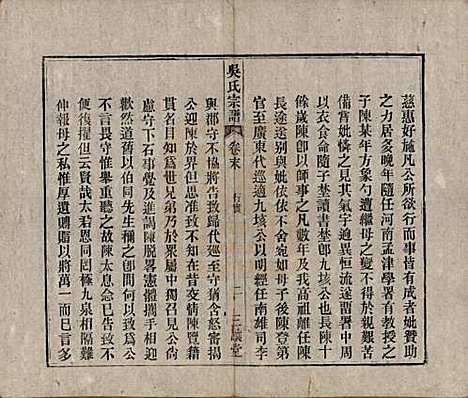 慈惠好施凡公所欲行而事皆有成者妣贊助
之力居多晚年隨任河南孟津學署有教授之
子陳某年方象勺遭繼母之變不得於親艱苦
備嘗妣憐之見其氣宇迥異恒流遂畱署中周
以衣食命隨子埜讀書埜卽九垓公也長陳十
餘歲陳卽以師事之凡數年及我高祖離任陳
長途送別與妣依依不舍宛如母子後陳登第
官至廣東代巡適九垓公以明經任南雄司李
吳氏宗譜
卷末
行實
二
三讓堂
與郡守不協將告致歸代巡至守猶含怒審揭
公迎陳於界首而守投揭在後信宿案陳覽籍
貫名目知爲世兄弟乃於衆屬中獨召見公尙
慮守下石事覺及進謁陳脱畧憲體攜手相迎
歡然道舊以伯同先生稱之卽間何以至此對
大畏且懼惟舉重聽之故陳太息念已告致不
便復擢但云賢哉太若恩同罔極九泉相隔難
伸報母之私惟厚遺賻賵以將萬一而已言多